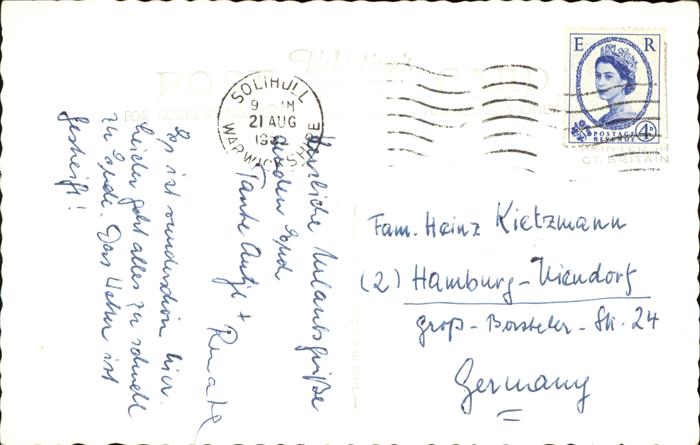 POST CARD
FOR CORRES
SOLIHULL
9 - AM
21 AUG
WARWICKSHIRE
E R
POSTAGE
REVENUE
4D
PRINTED IN
GT. BRITAIN
Herzliche Urlaubsgrüße
senden Euch
Tante Antje +
Renate
Es ist wunderschön hier.
Leider geht alles zu schnell
zu Ende. Das Wetter ist
gescheift!
Fam. Heinz Kietzmann
(2) Hamburg-Niendorf
Groß-Borsteler-Str. 24
Germany